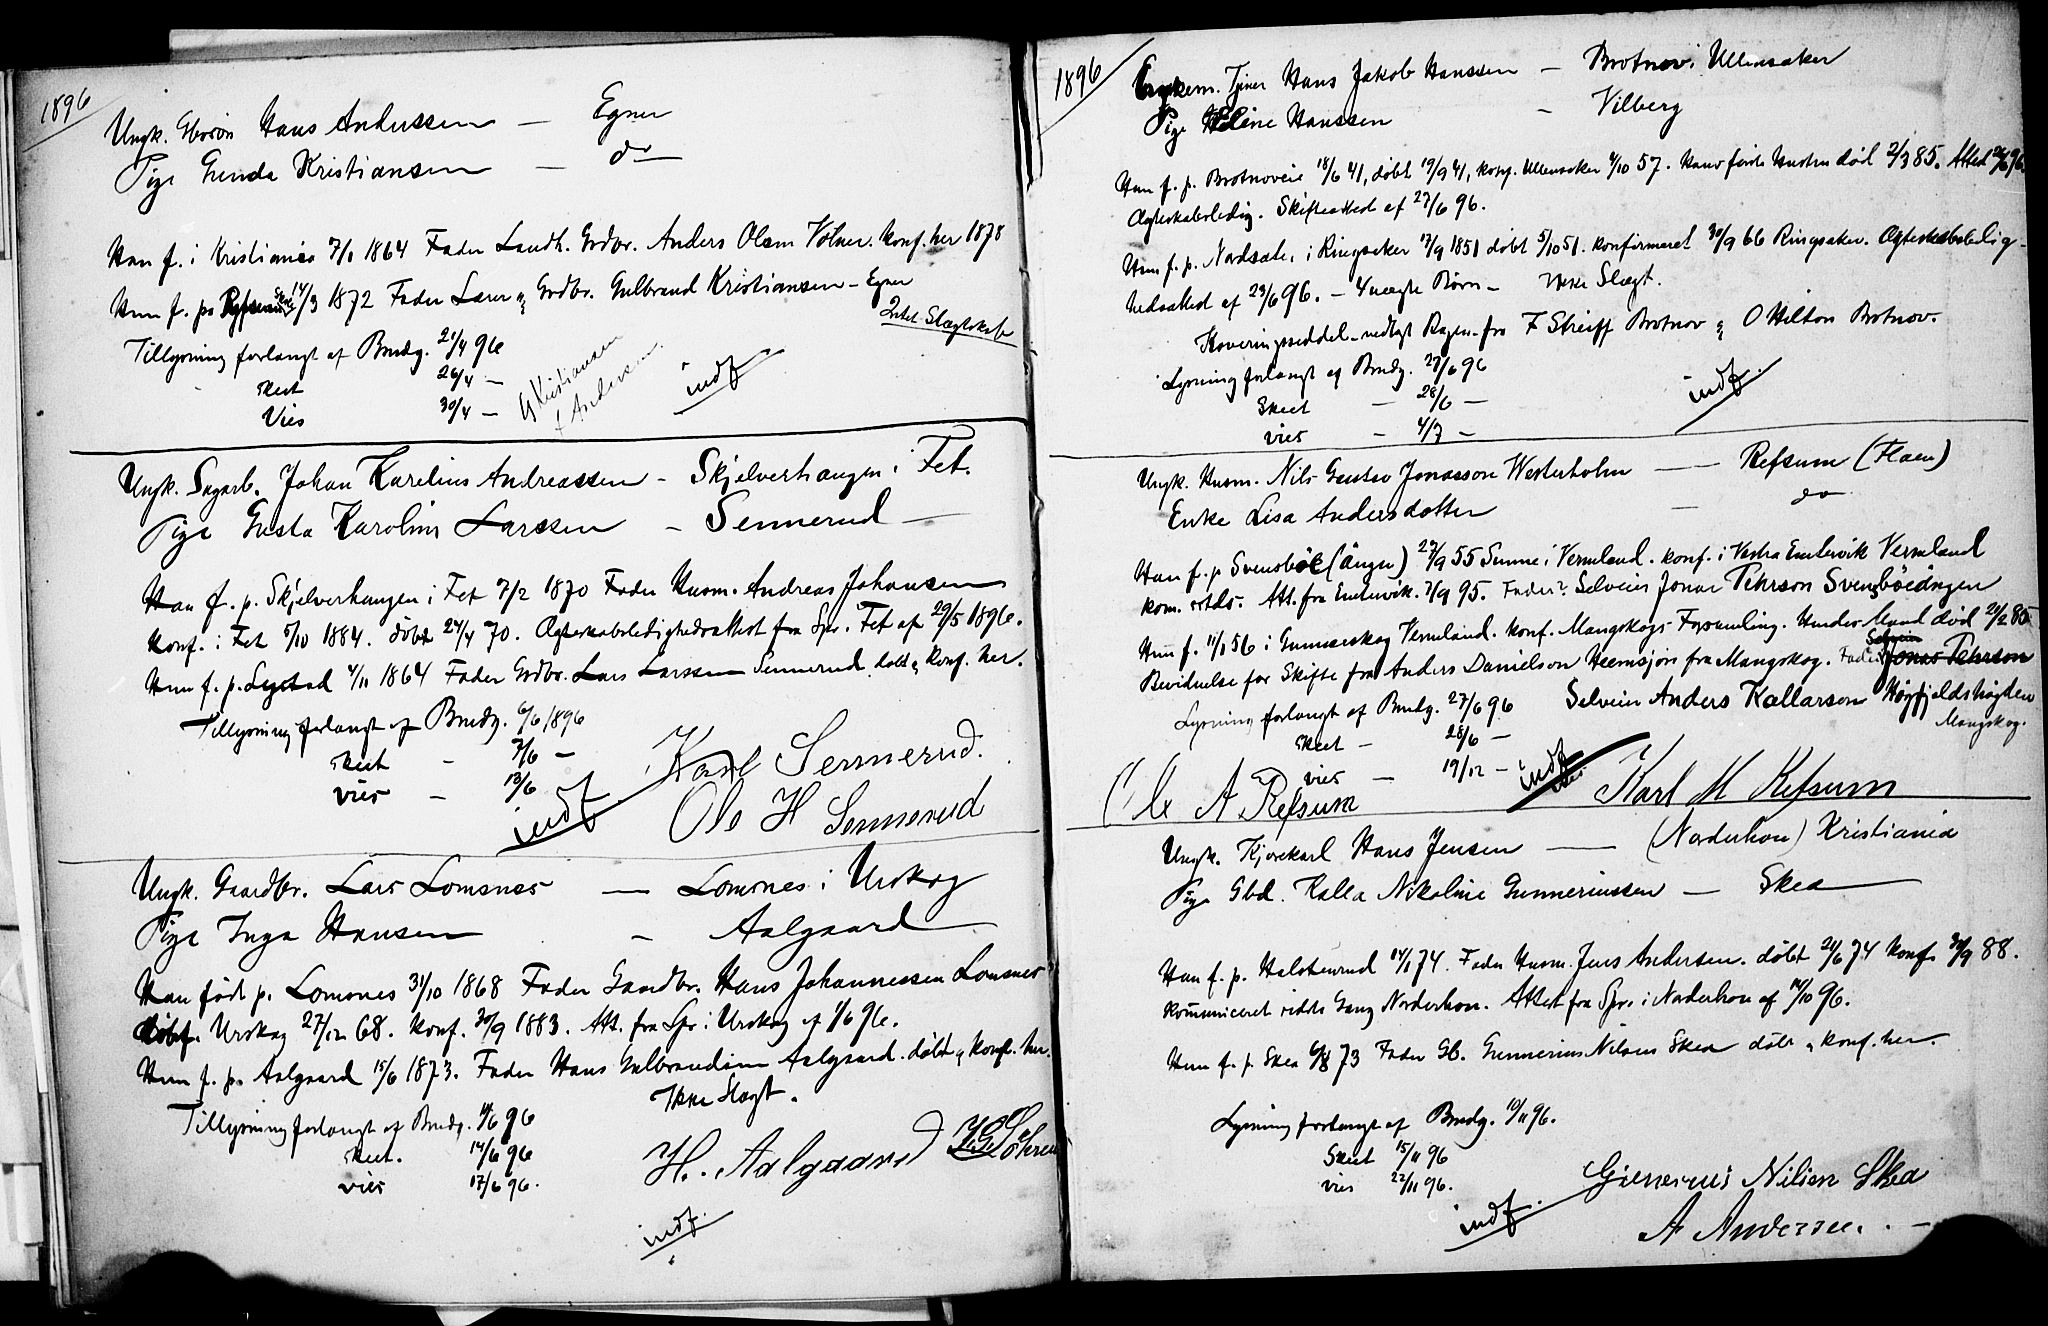 1896
Ungk. Gbrsön Hans Anderssen — Egner
Pige Gunda Kristiansen — do
Han f. i Kristiania 7/1 1864 Fader Landh. Grdbr. Anders Olsen Volner. konf. her 1878
Hun f. paa 14/3 1872 Fader Lærer og Grdbr. Gulbrand Kristiansen – Egner
Intet Slægtskab
Tillysning forlangt af Brudg. 21/4 96
skeet 26/4 —
Vies 30/4 —
G Kristiansen
Andersen
indf
Ungk. Sagarb. Johan Karelius Andreassen – Skjelverhaugen i Fet.
Pige Gusta Karoline Larssen – Sennerud —
Han f. p. Skjelverhaugen i Fet 7/2 1870 Fader Husm. Andreas Johansen
konf. i Fet 5/10 1884. döbt 24/4 70. Ægteskabsledighedsattest fra Spr. Fet af 29/5 1896.
Hun f. p. Lystad 4/11 1864 Fader Grdbr. Lars Larssen Sennerud. döbt og konf. her.
Tillysning forlangt af Brudg. 6/6 1896
skeet – 7/6 —
vies – 13/6
indf
Karl Sennerud.
Ole H Sennerud
Ungk. Gaardbr. Lars Lomsnes — Lomsnes i Urskog
Pige Inga Hansen – Aalgaard
Han född p. Lomsnes 31/10 1868 Fader Gaardbr. Hans Johannessen Lomsnes
döbt. Urskog 27/12 68. konf. 30/9 1883. Att. fra Spr. i Urskog af 1/6 96.
Hun f. p. Aalgaard 15/6 1873. Fader Hans Gulbrandsen Aalgaard. döbt og konf. her.
Ikke Slægt.
Tillysning forlangt af Brudg. 11/6 96
skeet. 14/6 96
vies 17/6 96.
H. Aalgaard
indf.
1896
Tjener Hans Jakob Hanssen — Brotnov i Ullensaker
Pige Heline Hanssen – Vilberg
Han f. p. Brotnoveie 18/6 41, döbt 19/9 41, konf. Ullensaker 4/10 57. Hans förste Hustru död 2/3 85. Attest
Ægteskabsledig. Skifteattest af 27/6 96.
Hun f. p. Nordsæter i Ringsaker 17/9 1851 döbt 5/10 51. konfirmeret 30/9 66 Ringsaker. Ægteskabsledig-
hedsattest af 23/6 96. – 4 uægte Börn – Ikke Slægt.
Koveringsseddel – vedlagt Bogen – fra F Streiff Brotnov og O Hilton Brotnov.
Lysning forlangt af Brudg. 27/6 96
Skeet – 28/6 —
vies – 4/7 –
indf.
Ungk. Husm. Nils Gustav Jonasson Westerholm —— Refsum (Flaen)
Enke Lisa Andersdotter — do
Han f. p Svensböe (ängen) 29/9 55 Sunne i Vermland. konf. i Vestra Emtervik Vermland
kom. Att. fra Emtervik. 7/9 95. Fader: Selveier Jonas Pehrson Svensböeängen
Hun f. 11/1 56 i Gunnarskog Vermland. konf. Mangskogs Forsamling. Hendes Mand död 20/2 85
Bevidnelse for Skifte fra Anders Danielson Heemsjon fra Mangskog. Fader Selveier Jonas Pehrson
Selveier Anders Kallarson Högfjeldshögden
Mangskog.
Lysning forlangt af Brudg. 27/6 96
skeet – 28/6 —
vies – 19/12 –
indf
Ole A Refsum
Karl M Refsum
Ungk. Kjörekarl Hans Jensen —— (Norderhov) Kristiania
Pige Gbd. Kalla Nikoline Gunneriussen — Skea
Han f. p. Halstenrud 14/1 74. Fader Husm. Jens Andersen. döbt 21/6 74 konf. 30/9 88.
kommuniceret sidste Gang Norderhov. Attest fra Spr. i Norderhov af 14/10 96.
Hun f. p. Skea 6/8 73 Fader Gb. Gunnerius Nilsen Skea döbt og konf. her.
Lysning forlangt af Brudg. 10/11 96.
Skeet 15/11 96
vies 22/11 96.
indf.
Gunerius Nilsen Skea
A Andersen. —